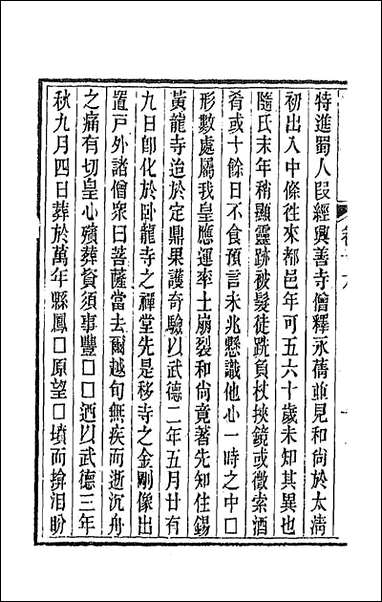 特進蜀人段經興善寺僧釋永蒨並見和尚於太淸
初出入中條徃來都邑年可五六十歲未知其異也
隨氏末年稍顯靈跡被髮徒跣負杖挾鏡或徵索酒
肴或十餘日不食預言未兆懸識他心一時之中□
形數處屬我皇應運率土崩裂和尚竟著先知住錫
黃龍寺迨於定鼎果護奇驗以武德二年五月廿有
九日卽化於臥龍寺之禪堂先是移寺之金剛像出
置戶外諸僧衆曰菩薩當去爾越旬無疾而逝沉舟
之痛有切皇心殯葬資須事豐□□迺以武德三年
秋九月四日葬於萬年縣鳳□原望□墳而揜淚盼